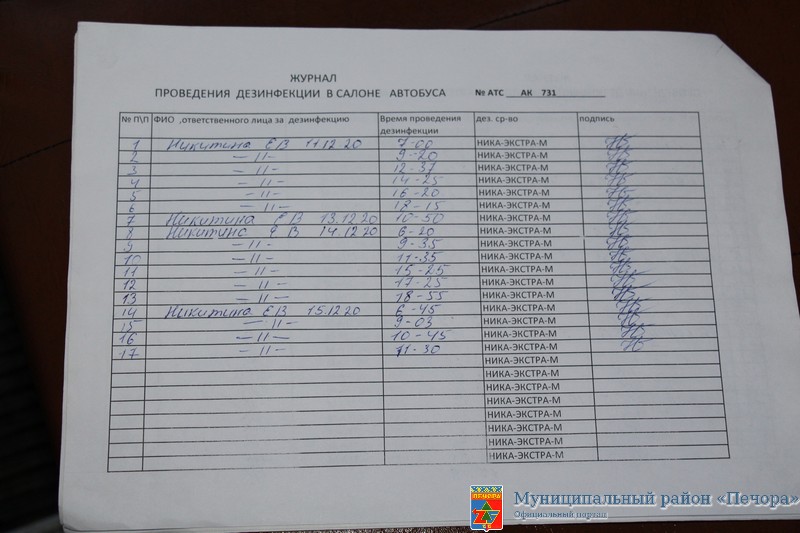 ЖУРНАЛ
ПРОВЕДЕНИЯ ДЕЗИНФЕКЦИИ В САЛОНЕ АВТОБУСА № АТС АК 731
№ П\П ФИО ,ответственного лица за дезинфекцию Время проведения дезинфекции дез. ср-во подпись
1 Никитина ЕВ 11.12.20 7-00 НИКА-ЭКСТРА-М
2 —11— 9-20 НИКА-ЭКСТРА-М
3 —11— 12-37 НИКА-ЭКСТРА-М
4 —11— 14-25 НИКА-ЭКСТРА-М
5 —11— 16-20 НИКА-ЭКСТРА-М
6 —11— 18-15 НИКА-ЭКСТРА-М
7 Никитина ЕВ 13.12.20 10-50 НИКА-ЭКСТРА-М
8 Никитина ЕВ 14.12.20 6-20 НИКА-ЭКСТРА-М
9 —11— 9-35 НИКА-ЭКСТРА-М
10 —11— 11-35 НИКА-ЭКСТРА-М
11 —11— 15-25 НИКА-ЭКСТРА-М
12 —11— 17-25 НИКА-ЭКСТРА-М
13 —11— 18-55 НИКА-ЭКСТРА-М
14 Никитина ЕВ 15.12.20 6-45 НИКА-ЭКСТРА-М
15 —11— 9-03 НИКА-ЭКСТРА-М
16 —11— 10-45 НИКА-ЭКСТРА-М
17 —11— 11-30 НИКА-ЭКСТРА-М
НИКА-ЭКСТРА-М
НИКА-ЭКСТРА-М
НИКА-ЭКСТРА-М
НИКА-ЭКСТРА-М
НИКА-ЭКСТРА-М
НИКА-ЭКСТРА-М
НИКА-ЭКСТРА-М
НИКА-ЭКСТРА-М
ПЕЧОРА
Муниципальный район «Печора»
Официальный портал